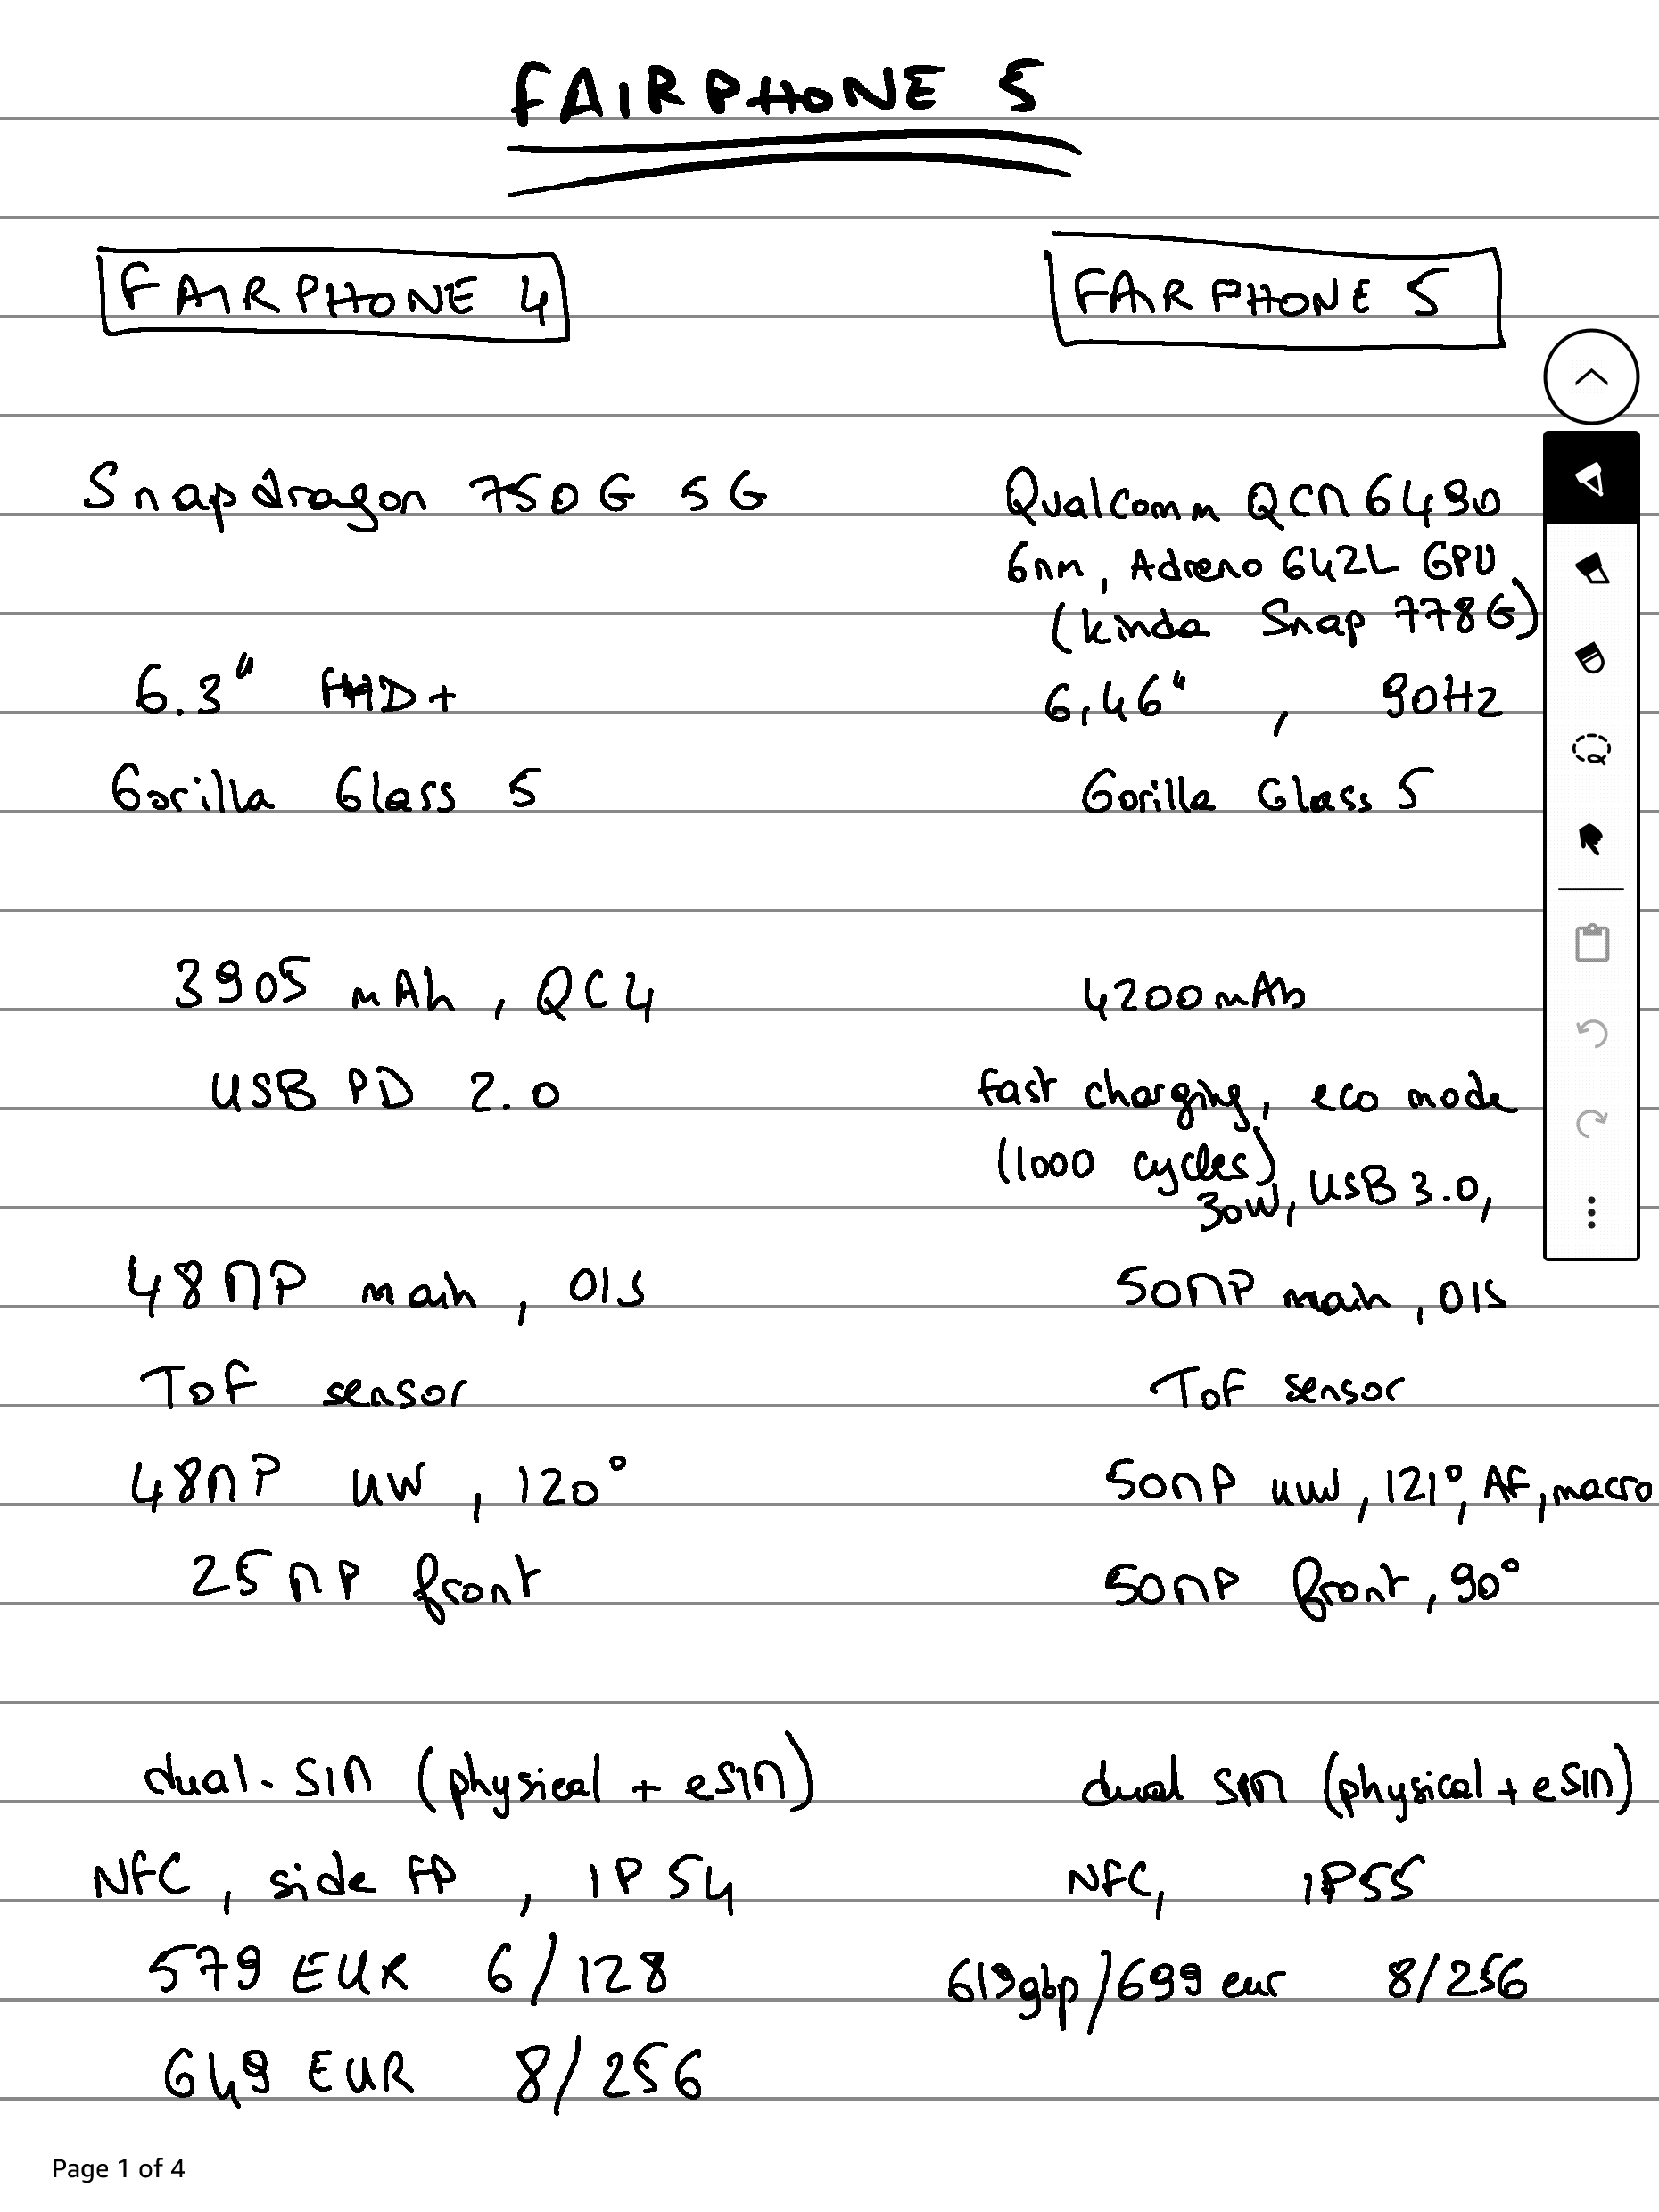 FAIRPHONE 5
FAIRPHONE 4
FAIRPHONE 5
Snapdragon 750G 5G
Qualcomm QCM6490
6nm, Adreno 642L GPU
(kinda Snap 778G)
6.3" FHD+
6,46", 90Hz
Gorilla Glass 5
Gorilla Glass 5
3905 mAh, QC4
4200mAh
USB PD 2.0
fast charging, eco mode
(1000 cycles)
30W, USB 3.0,
48MP main, OIS
50MP main, OIS
ToF sensor
ToF sensor
48MP UW, 120°
50MP uw, 121°, AF, macro
25MP front
50MP front, 90°
dual-SIM (physical + eSIM)
dual SIM (physical + eSIM)
NFC, side FP, IP54
NFC, IP55
579 EUR 6/128
619gbp/699 eur 8/256
649 EUR 8/256
Page 1 of 4